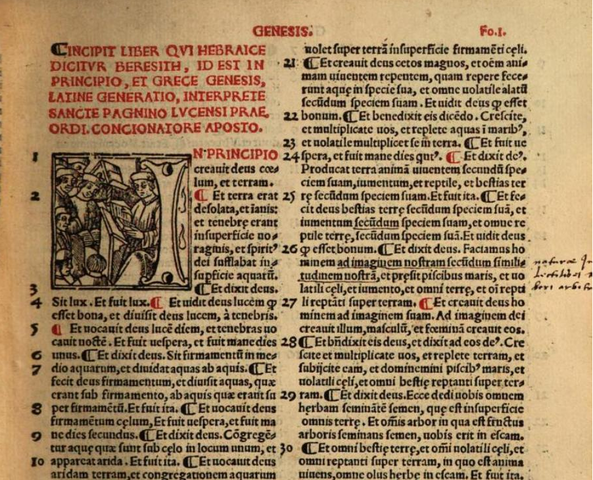 GENESIS.
Fo.I.
INCIPIT LIBER QVI HEBRAICE
DICITVR BERESITH, ID EST IN
PRINCIPIO, ET GRECE GENESIS,
LATINE GENERATIO, INTERPRETE
SANCTE PAGNINO LVCENSI PRAE,
ORDI. CONCIONATORE APOSTO.
1 IN PRINCIPIO
creauit deus cœ-
lum, et terram.
2 ¶ Et terra erat
desolata, et ĩanis:
et tenebrę erant
in superficie uo-
raginis, et spirit⁹
dei sufflabat in
supficie aquarũ.
3 ¶ Et dixit deus.
4 Sit lux. Et fuit lux. ¶ Et uidit deus lucem ꝙ
esset bona, et diuisit deus lucem, à tenebris.
5 ¶ Et uocauit deus lucẽ diem, et tenebras uo
cauit noctẽ. Et fuit uespera, et fuit mane dies
6 unus. ¶ Et dixit deus. Sit firmamentũ in me-
7 dio aquarum, et diuidat aquas ab aquis. ¶ Et
fecit deus firmamentum, et diuisit aquas, quæ
erant sub firmamento, ab aquis quæ erant su
8 per firmamẽtũ. Et fuit ita. ¶ Et uocauit deus
firmamentum cęlum, Et fuit uespera, et fuit ma
9 ne dies secundus. ¶ Et dixit deus. Cõgregẽ-
tur aquę quæ sunt sub cęlo in locum unum, et
10 appareat arida. Et fuit ita. ¶ Et uocauit deus
aridam terram, et congregationem aquarum
uolet super terrã in superficie firmamẽti cęli.
21 ¶ Et creauit deus cetos magnos, et oẽm ani-
mam uiuentem repentem, quam repere fece-
runt aquę in specie sua, et omne uolatile alatũ
secũdum speciem suam. Et uidit deus ꝙ esset
22 bonum. ¶ Et benedixit eis dicẽdo. Crescite,
et multiplicate uos, et replete aquas ĩ marib⁹,
23 et uolatile multiplicet se ĩn terra. ¶ Et fuit ue
24 spera, et fuit mane dies qnt⁹. ¶ Et dixit de⁹.
Producat terra animã uiuentem secundũ spe-
ciem suam, iumentum, et reptile, et bestias ter
25 rę secũdum speciem suam. Et fuit ita ¶ Et fe-
cit deus bestias terrę secũdum speciem suã, et
iumentum secũdum speciem suam, et omne re
ptile terrę, secũdum speciem suã. Et uidit deus
26 ꝙ esset bonum. ¶ Et dixit deus. Faciamus ho
minem ad imaginem nostram secũdum simili-
tudinem nostrã, et pręsit piscibus maris, et uo
latili cęli, et iumento, et omni terrę, et oĩ repti
27 li reptãti super terram. ¶ Et creauit deus ho
minem ad imaginem suam. Ad imaginem dei
creauit illum, masculũ, et fœminã creauit eos.
28 ¶ Et bñdixit eis deus, et dixit ad eos de⁹. Cre
scite et multiplicate uos, et replete terram, et
subijcite eam, et dominemini piscib⁹ maris, et
uolatili cęli, et omni bestię reptanti super ter-
29 ram. ¶ Et dixit deus. Ecce dedi uobis omnem
herbam seminãtẽ semen, quę est in superficie
omnis terrę. Et oẽm arbor in qua est fructus
arboris seminans semen, uobis erit in escam.
30 ¶ Et omni bestię terrę, et oĩ uolatili cęli, et
omni reptanti super terram, in quo est anima
uiuens, omne olus herbę in escam. Et fuit ita.